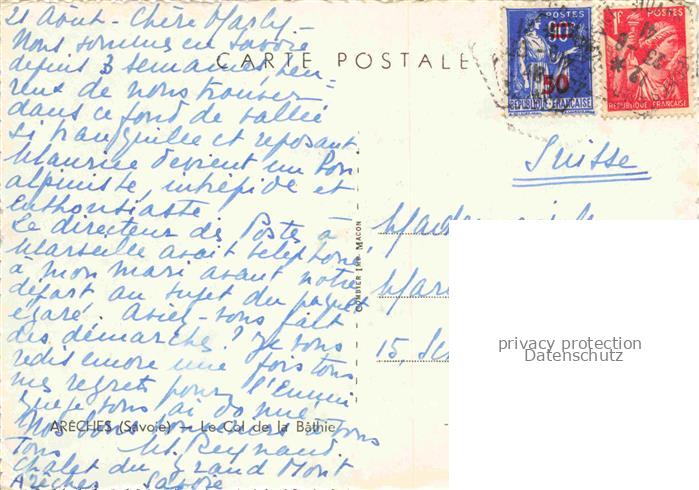 21 Août - Chère Marly -
Nous sommes en Savoie
depuis 3 semaines heu=
reux de nous trouver
dans ce fond de vallée
si tranquille et reposant
Maurice devient un bon
alpiniste, intrépide et
enthousiaste
Le directeur des Postes à
Marseille avait téléphoné
à mon mari avant notre
départ au sujet du paquet
égaré. Aviez-vous fait
des démarches? Je vous
redis encore une fois tous
mes regrets pour l'ennui
que je vous ai donné
Nos bons souvenirs à vous
Tous M. Reynaud.
Chalet du Grand Mont
Arèches Savoie
ARÊCHES (Savoie) — Le Col de la Bâthie
CARTE POSTALE
COMBIER IMP. MACON
POSTES
90c
50
REPUBLIQUE FRANÇAISE
1F POSTES
REPUBLIQUE FRANÇAISE
Suisse
15,
privacy protection
Datenschutz